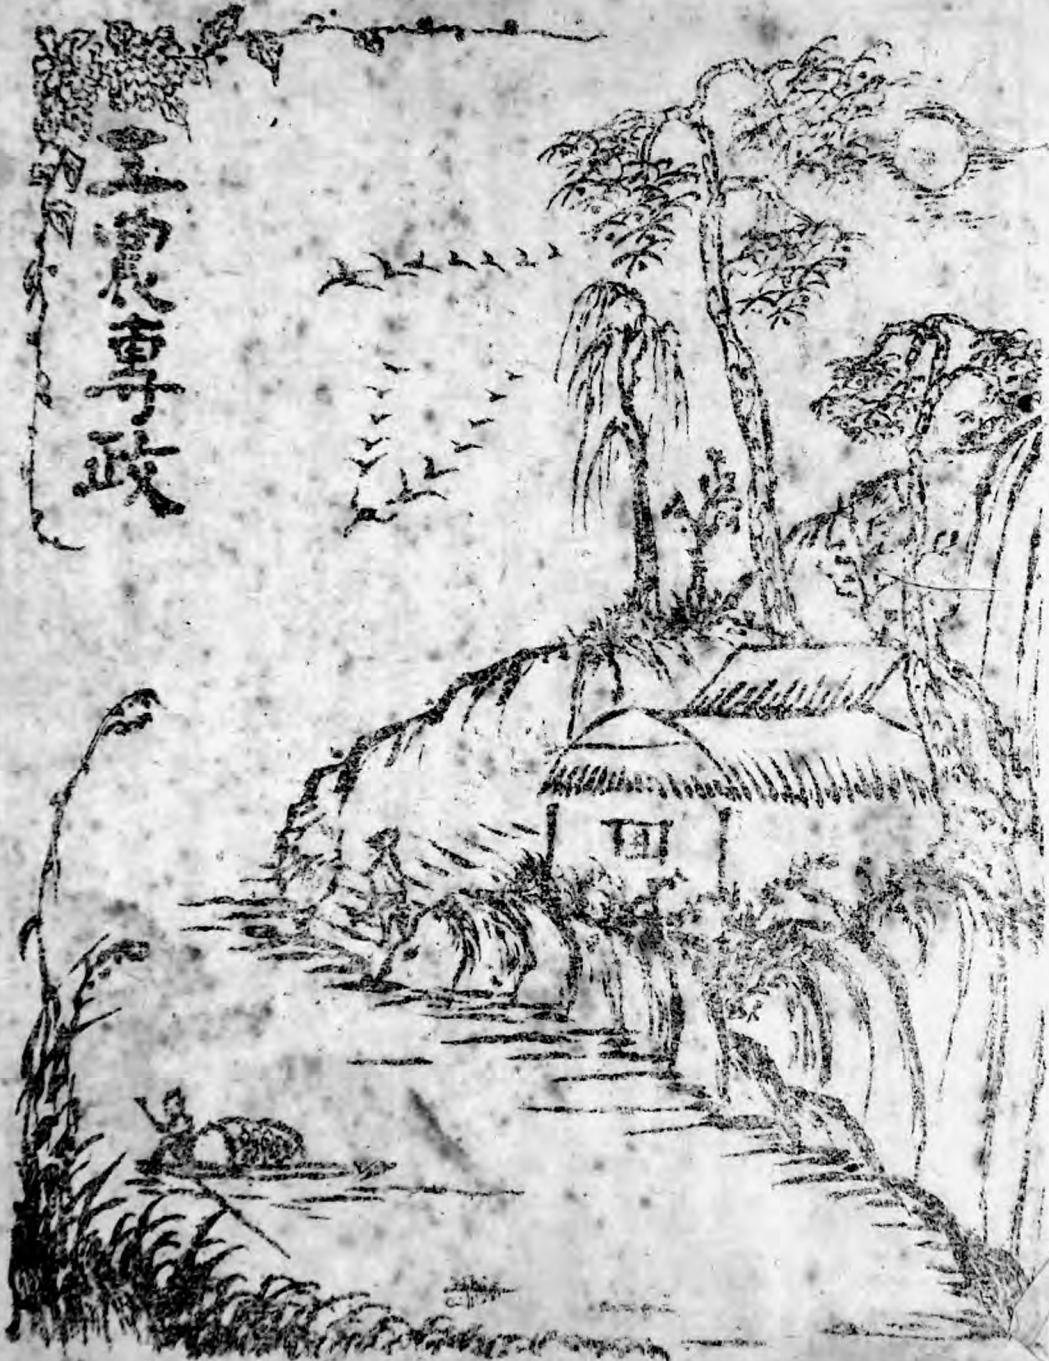 工農專政